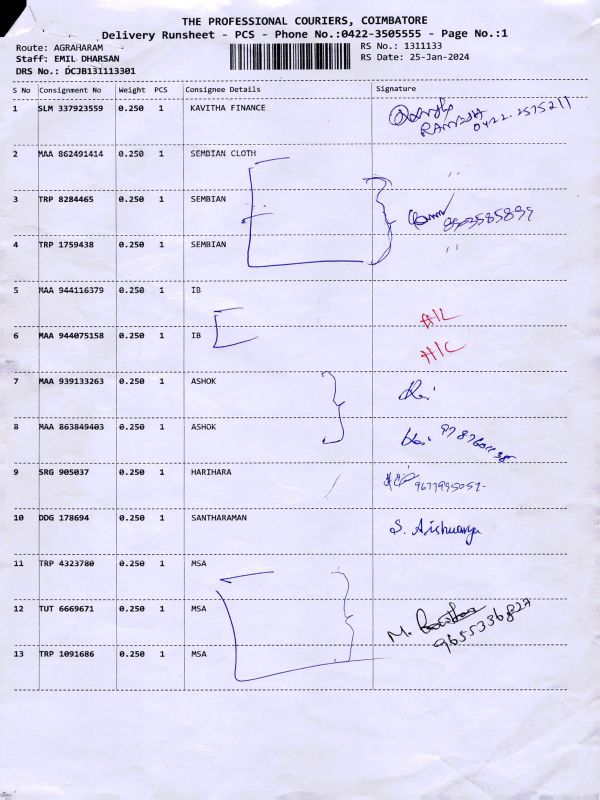 THE PROFESSIONAL COURIERS, COIMBATORE
Delivery Runsheet - PCS - Phone No.:0422-3505555 - Page No.:1
Route: AGRAHARAM RS No.: 1311133
Staff: EMIL DHARSAN RS Date: 25-Jan-2024
DRS No.: DCJB131113301
S No Consignment No Weight PCS Consignee Details Signature
1 SLM 337923559 0.250 1 KAVITHA FINANCE
0422.2575211
2 MAA 862491414 0.250 1 SEMBIAN CLOTH "
3 TRP 8284465 0.250 1 SEMBIAN
4 TRP 1759438 0.250 1 SEMBIAN "
5 MAA 944116379 0.250 1 IB
6 MAA 944075158 0.250 1 IB H/C
7 MAA 939133263 0.250 1 ASHOK
8 MAA 863849403 0.250 1 ASHOK
9 SRG 905037 0.250 1 HARIHARA
10 DDG 178694 0.250 1 SANTHARAMAN S. Aishwarya
11 TRP 4323780 0.250 1 MSA
12 TUT 6669671 0.250 1 MSA M.
9655336827
13 TRP 1091686 0.250 1 MSA